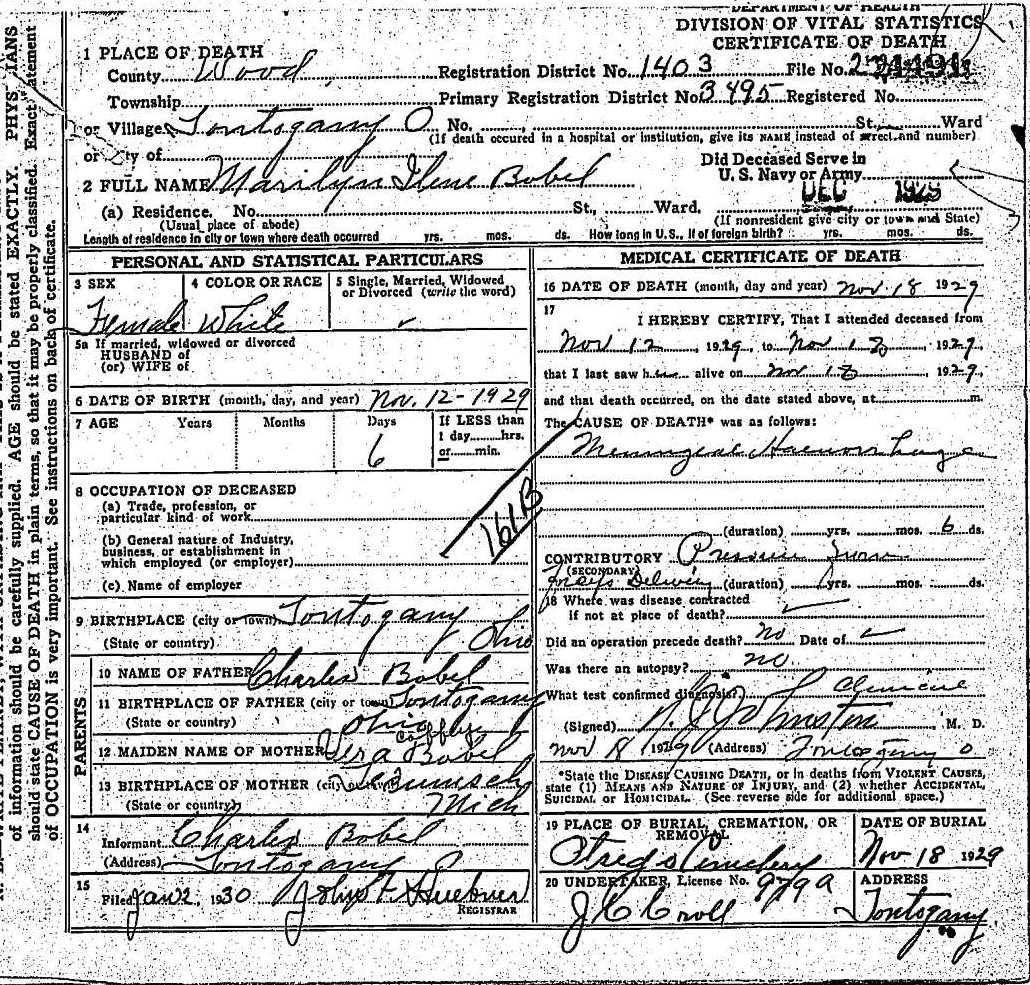 DEPARTMENT OF HEALTH
DIVISION OF VITAL STATISTICS
CERTIFICATE OF DEATH
1 PLACE OF DEATH
County Wood Registration District No. 1403 File No.
Township Primary Registration District No. 3495 Registered No.
or Village Tontogany O No. St., Ward
(If death occured in a hospital or institution, give its NAME instead of street and number)
or City of
Did Deceased Serve in
U. S. Navy or Army
2 FULL NAME Marilyn Ilene Bobel
DEC 1929
(a) Residence. No. St., Ward.
(Usual place of abode) (If nonresident give city or town and State)
Length of residence in city or town where death occurred yrs. mos. ds. How long in U. S., if of foreign birth? yrs. mos. ds.
PERSONAL AND STATISTICAL PARTICULARS
3 SEX 4 COLOR OR RACE 5 Single, Married, Widowed
or Divorced (write the word)
Female White
5a If married, widowed or divorced
HUSBAND of
(or) WIFE of
6 DATE OF BIRTH (month, day, and year) Nov. 12-1929
7 AGE Years Months Days If LESS than
1 day hrs.
6 or min.
8 OCCUPATION OF DECEASED
(a) Trade, profession, or
particular kind of work
(b) General nature of Industry,
business, or establishment in
which employed (or employer)
(c) Name of employer
161B
9 BIRTHPLACE (city or town) Tontogany
(State or country) Ohio
PARENTS
10 NAME OF FATHER Charles Bobel
11 BIRTHPLACE OF FATHER (city or town) Tontogany
(State or country) Ohio
12 MAIDEN NAME OF MOTHER Bobel
13 BIRTHPLACE OF MOTHER (city or town) Tecumseh
(State or country) Mich
14
Informant Charles Bobel
(Address) Tontogany O
15
Filed Jan 2, 1930 John F. Huebner
REGISTRAR
MEDICAL CERTIFICATE OF DEATH
16 DATE OF DEATH (month, day and year) Nov 18 1929
17
I HEREBY CERTIFY, That I attended deceased from
Nov 12, 1929, to Nov 18, 1929,
that I last saw her alive on Nov 18, 1929,
and that death occurred, on the date stated above, at m.
The CAUSE OF DEATH* was as follows:
Meningeal Haemorrhage
(duration) yrs. mos. 6 ds.
CONTRIBUTORY Pressure from
(SECONDARY)
Forceps Delivery (duration) yrs. mos. ds.
18 Where was disease contracted
if not at place of death?
Did an operation precede death? no Date of
Was there an autopsy? no.
What test confirmed diagnosis? Clinical
(Signed) Johnston M. D.
Nov 8 1929 (Address) Tontogany O
*State the DISEASE CAUSING DEATH, or in deaths from VIOLENT CAUSES,
state (1) MEANS AND NATURE OF INJURY, and (2) whether ACCIDENTAL,
SUICIDAL OR HOMICIDAL. (See reverse side for additional space.)
19 PLACE OF BURIAL, CREMATION, OR
REMOVAL
Cemetery
DATE OF BURIAL
Nov 18 1929
20 UNDERTAKER, License No. 979A
J C Croll
ADDRESS
Tontogany
of information should be carefully supplied. AGE should be stated EXACTLY. PHYSICIANS
should state CAUSE OF DEATH in plain terms, so that it may be properly classified. Exact statement
of OCCUPATION is very important. See instructions on back of certificate.